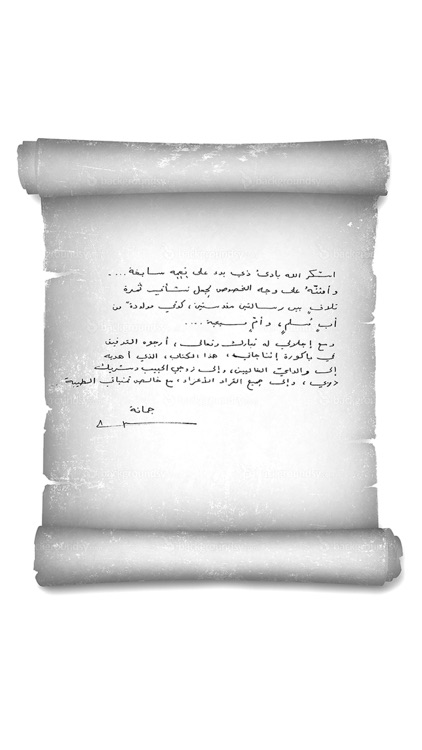 اشكر الله بادئ ذي بدء على نِعَمِه سابغة....
و أمتنُّهُ على وجه الخصوص لجعل نشأتي ثمرة
تلاقٍ بين رسالتين مقدستين، كوني مولودة من
أبٍ مُسلمٍ، و أمٍّ مسيحية....
ومع إجلالي له تبارك وتعالى، أرجوه التوفيق
في باكورة إنتاجاتي؛ هذا الكتاب، الذي أهديه
إلى والدايَ الغاليين، وإلى زوجي الحبيب وشريك
دربي، وإلى جميع القراء الأعزاء، مع خالص تمنياتي الطيبة
جمانة